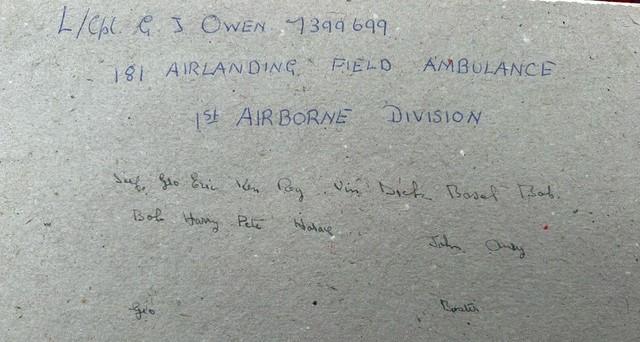 L/Cpl. G J OWEN 7399699
181 AIRLANDING FIELD AMBULANCE
1st AIRBORNE DIVISION
Geo Eric Ken Roy Vin Dick Basil Bob.
Bob Harry Pete Horace
John Andy
Geo